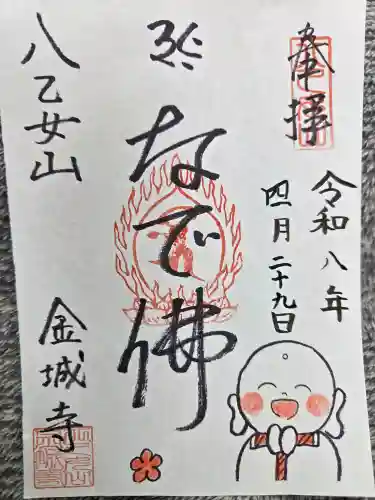 奉拝
令和八年
四月二十九日
なで佛
八乙女山
金城寺